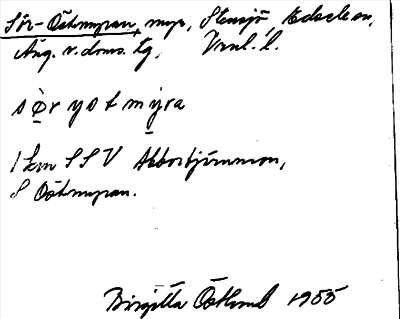 Sör-Östmyran, myr, Stensjö Edsele sn,
Ång. v. doms. tg, Vrnl. l.
sør yst myra
1 km SSV Abborrtjärnmon,
S Östmyran.
Birgitta Östlund 1955